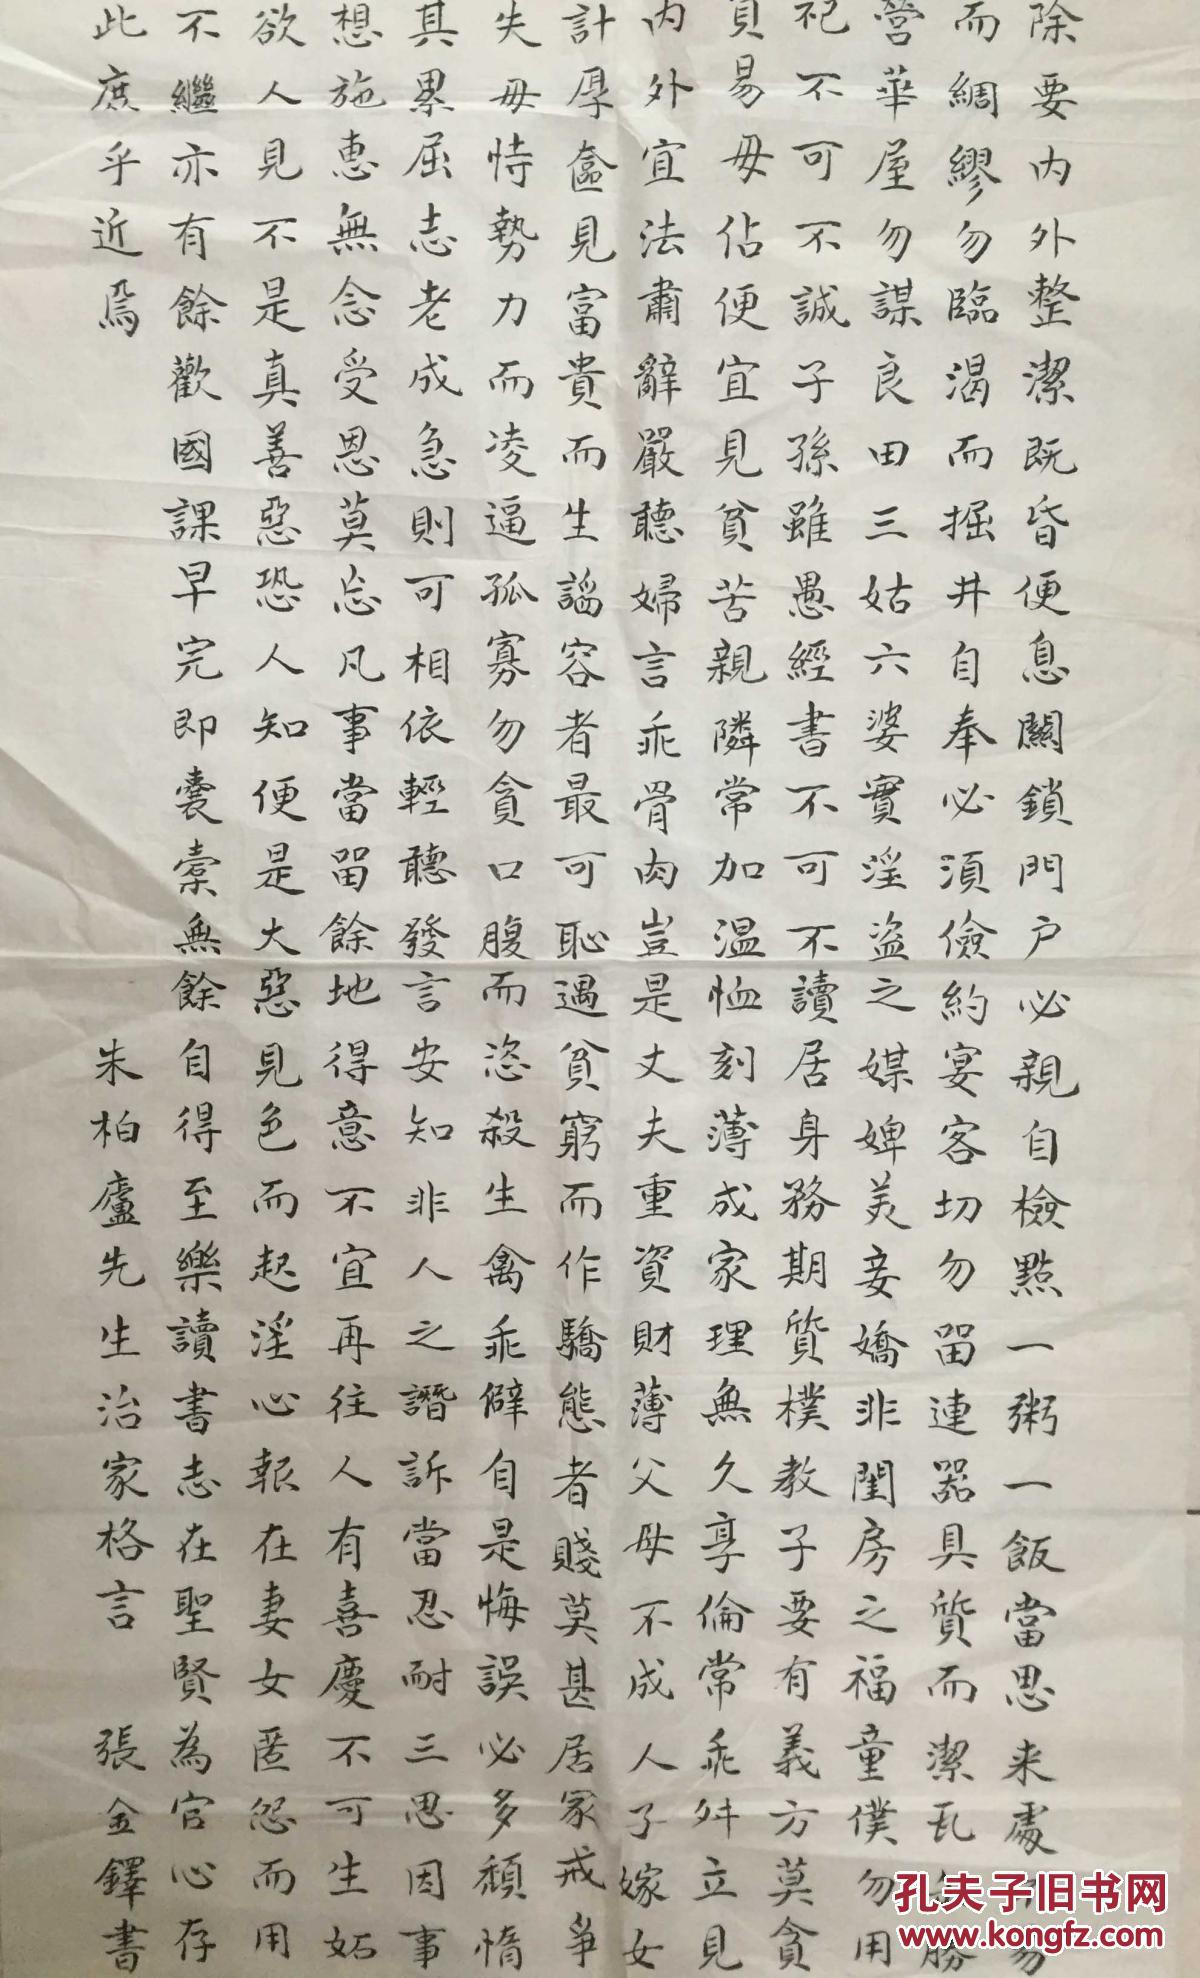 除要内外整潔既昏便息關鎖門户必親自檢點一粥一飯當思来處
而綢繆勿臨渴而掘井自奉必須儉約宴客切勿畱連器具質而潔瓦
營華屋勿謀良田三姑六婆實淫盗之媒婢美妾嬌非閨房之福童僕勿用
祀不可不誠子孫雖愚經書不可不讀居身務期質樸教子要有義方莫貪
貿易毋佔便宜見貧苦親隣常加温恤刻薄成家理無久享倫常乖舛立見
内外宜法肅辭嚴聽婦言乖骨肉豈是丈夫重資財薄父母不成人子嫁女
計厚奩見富貴而生謟容者最可恥遇貧窮而作驕態者賤莫甚居家戒爭
失毋恃勢力而凌逼孤寡勿貪口腹而恣殺生禽乖僻自是悔誤必多頹惰
其累屈志老成急則可相依輕聽發言安知非人之譖訴當忍耐三思因事
想施惠無念受恩莫忘凡事當畱餘地得意不宜再往人有喜慶不可生妬
欲人見不是真善惡恐人知便是大惡見色而起淫心報在妻女匿怨而用
不繼亦有餘歡國課早完即囊橐無餘自得至樂讀書志在聖賢為官心存
此庶乎近焉 朱柏廬先生治家格言 張金鐸書
孔夫子旧书网
www.kongfz.com